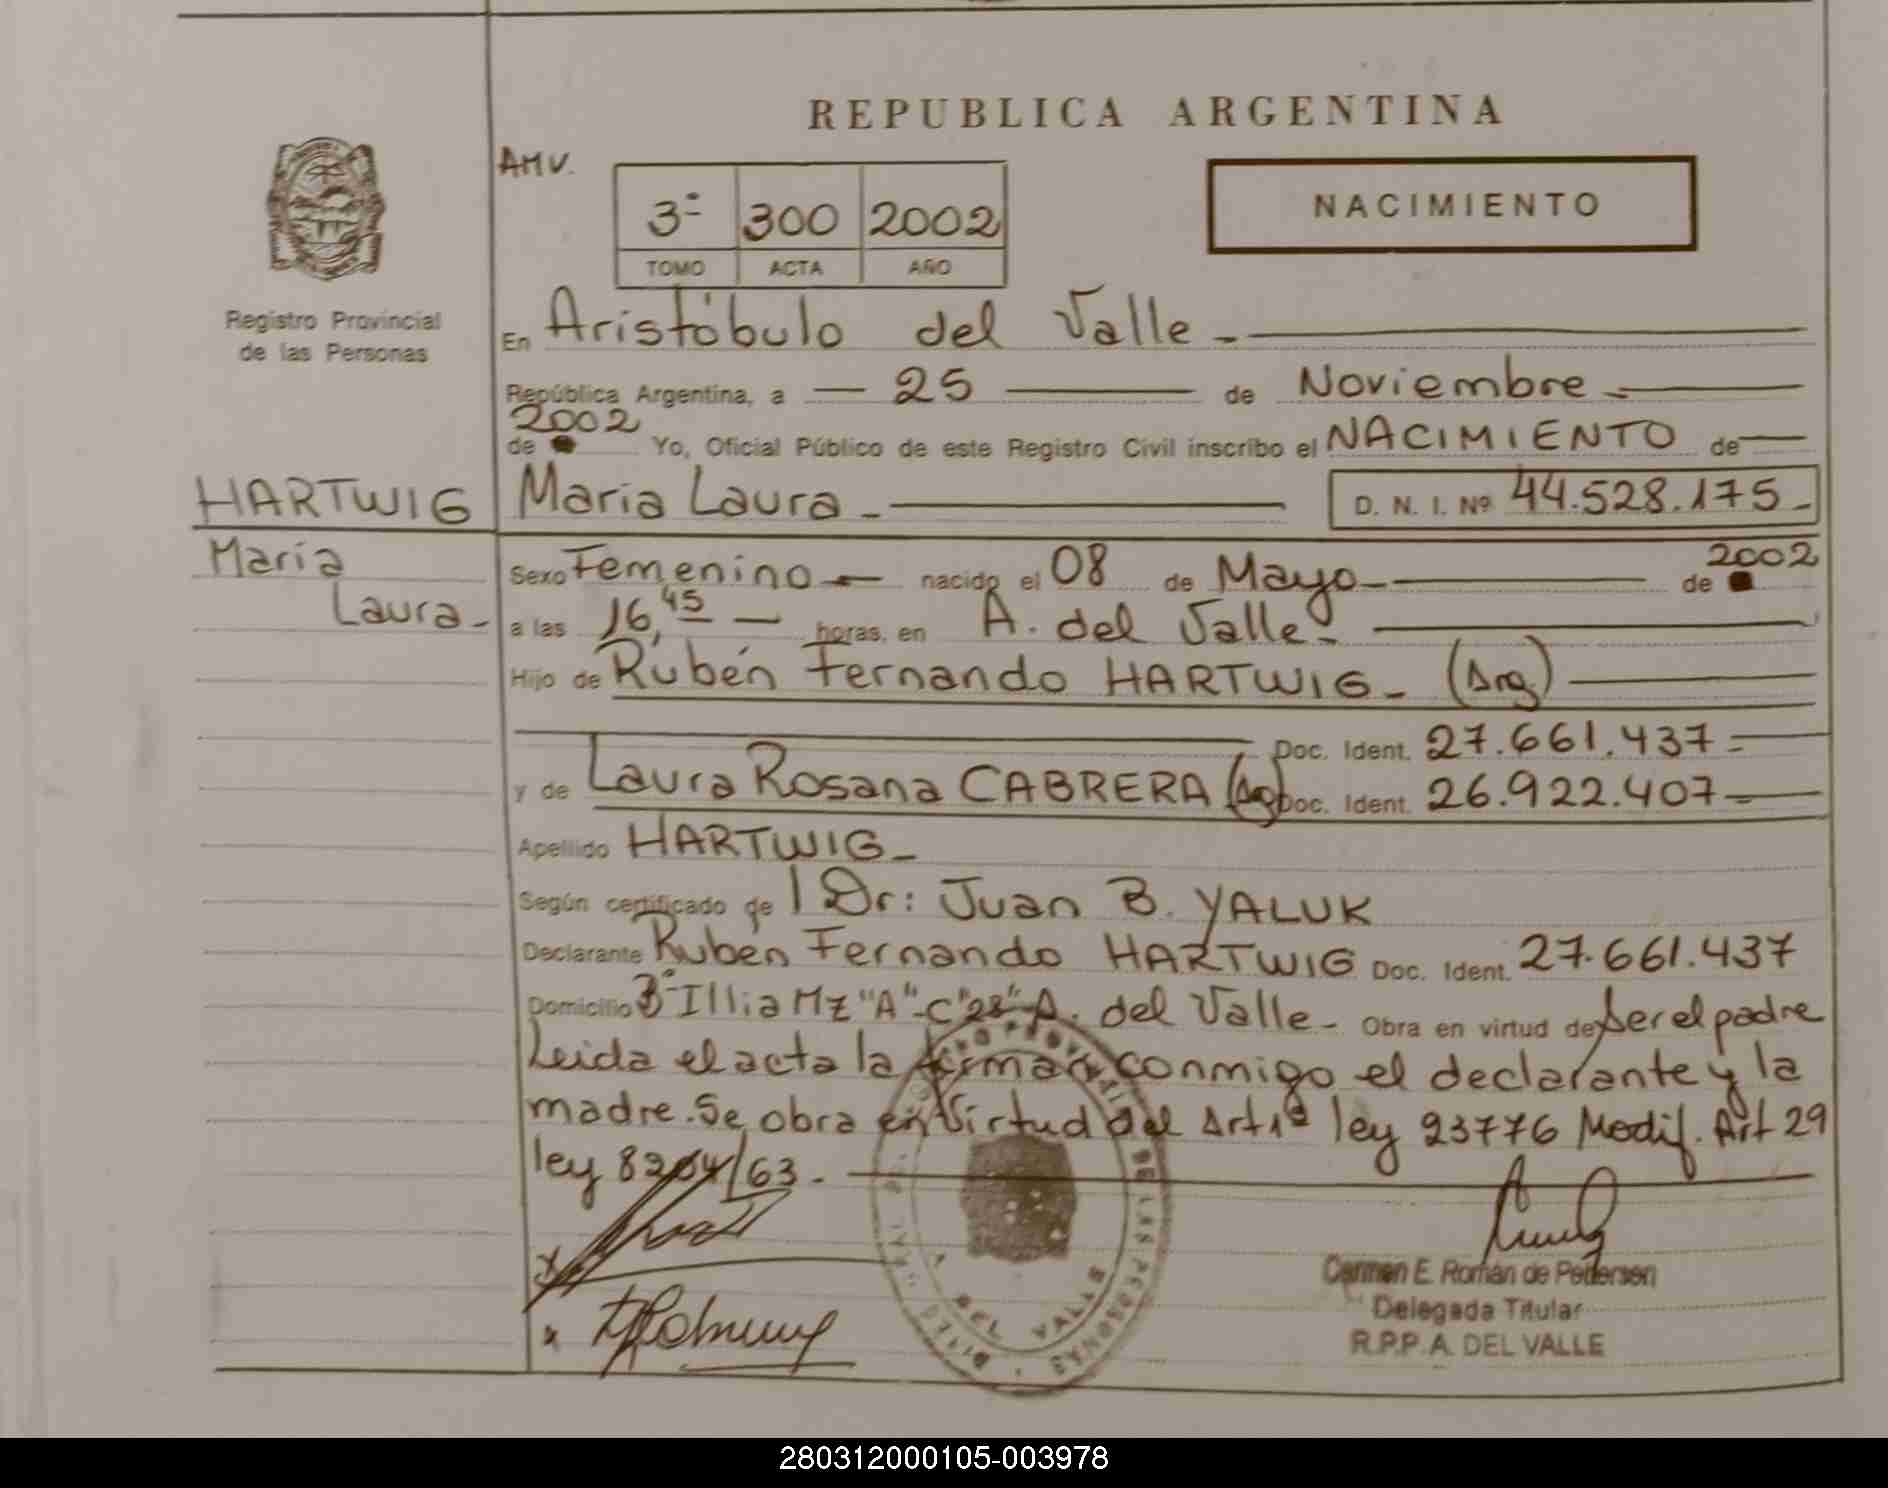 REPUBLICA ARGENTINA
AMV.
3º 300 2002
TOMO ACTA AÑO
NACIMIENTO
Registro Provincial
de las Personas
En Aristóbulo del Valle -
República Argentina, a - 25 - de Noviembre -
2002
de Yo, Oficial Público de este Registro Civil inscribo el NACIMIENTO de
HARTWIG María Laura - D. N. I. Nº 44.528.175 -
María
Laura -
Sexo Femenino - nacido el 08 de Mayo - de 2002
a las 16,45 - horas, en A. del Valle -
Hijo de Rubén Fernando HARTWIG - (Arg)
Doc. Ident. 27.661.437 -
y de Laura Rosana CABRERA (Arg) Doc. Ident. 26.922.407 -
Apellido HARTWIG -
Según certificado de l Dr: Juan B. YALUK
Declarante Rubén Fernando HARTWIG Doc. Ident. 27.661.437
Domicilio Bº Illia Mz "A" - C "28" - A. del Valle - Obra en virtud de Ser el padre
Leida el acta la firman conmigo el declarante y la
madre. Se obra en Virtud del Art 1º ley 23776 Modif. Art 29
ley 8204/63. -
Carmen E. Román de Pedersen
Delegada Titular
R.P.P. A. DEL VALLE
A. DEL VALLE
280312000105-003978